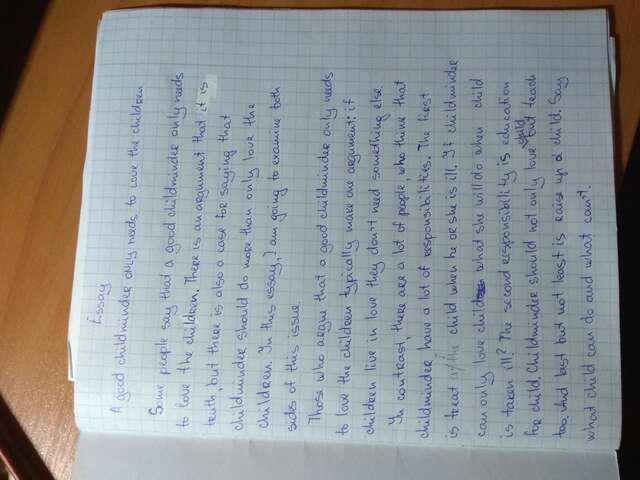 Essay
A good childminder only needs to love the children
Some people say that a good childminder only needs
to love the children. There is an argument that it is
truth but there is also a case for saying that
childminder should do more than only love the
children. In this essay, I am going to examine both
sides of this issue
Those who argue that a good childminder only needs
to love the children typically make one argument: if
children live in love they don't need something else
In contrast, there are a lot of people who think that
childminder have a lot of responsibilities. The first
is treat child when he or she is ill. If childminder
can only love child what she will do when child
is taken ill? The second responsibility is education
for child. Childminder should not only love child but teach
too. And last but not least is raise up a child. Say
what child can do and what can't.